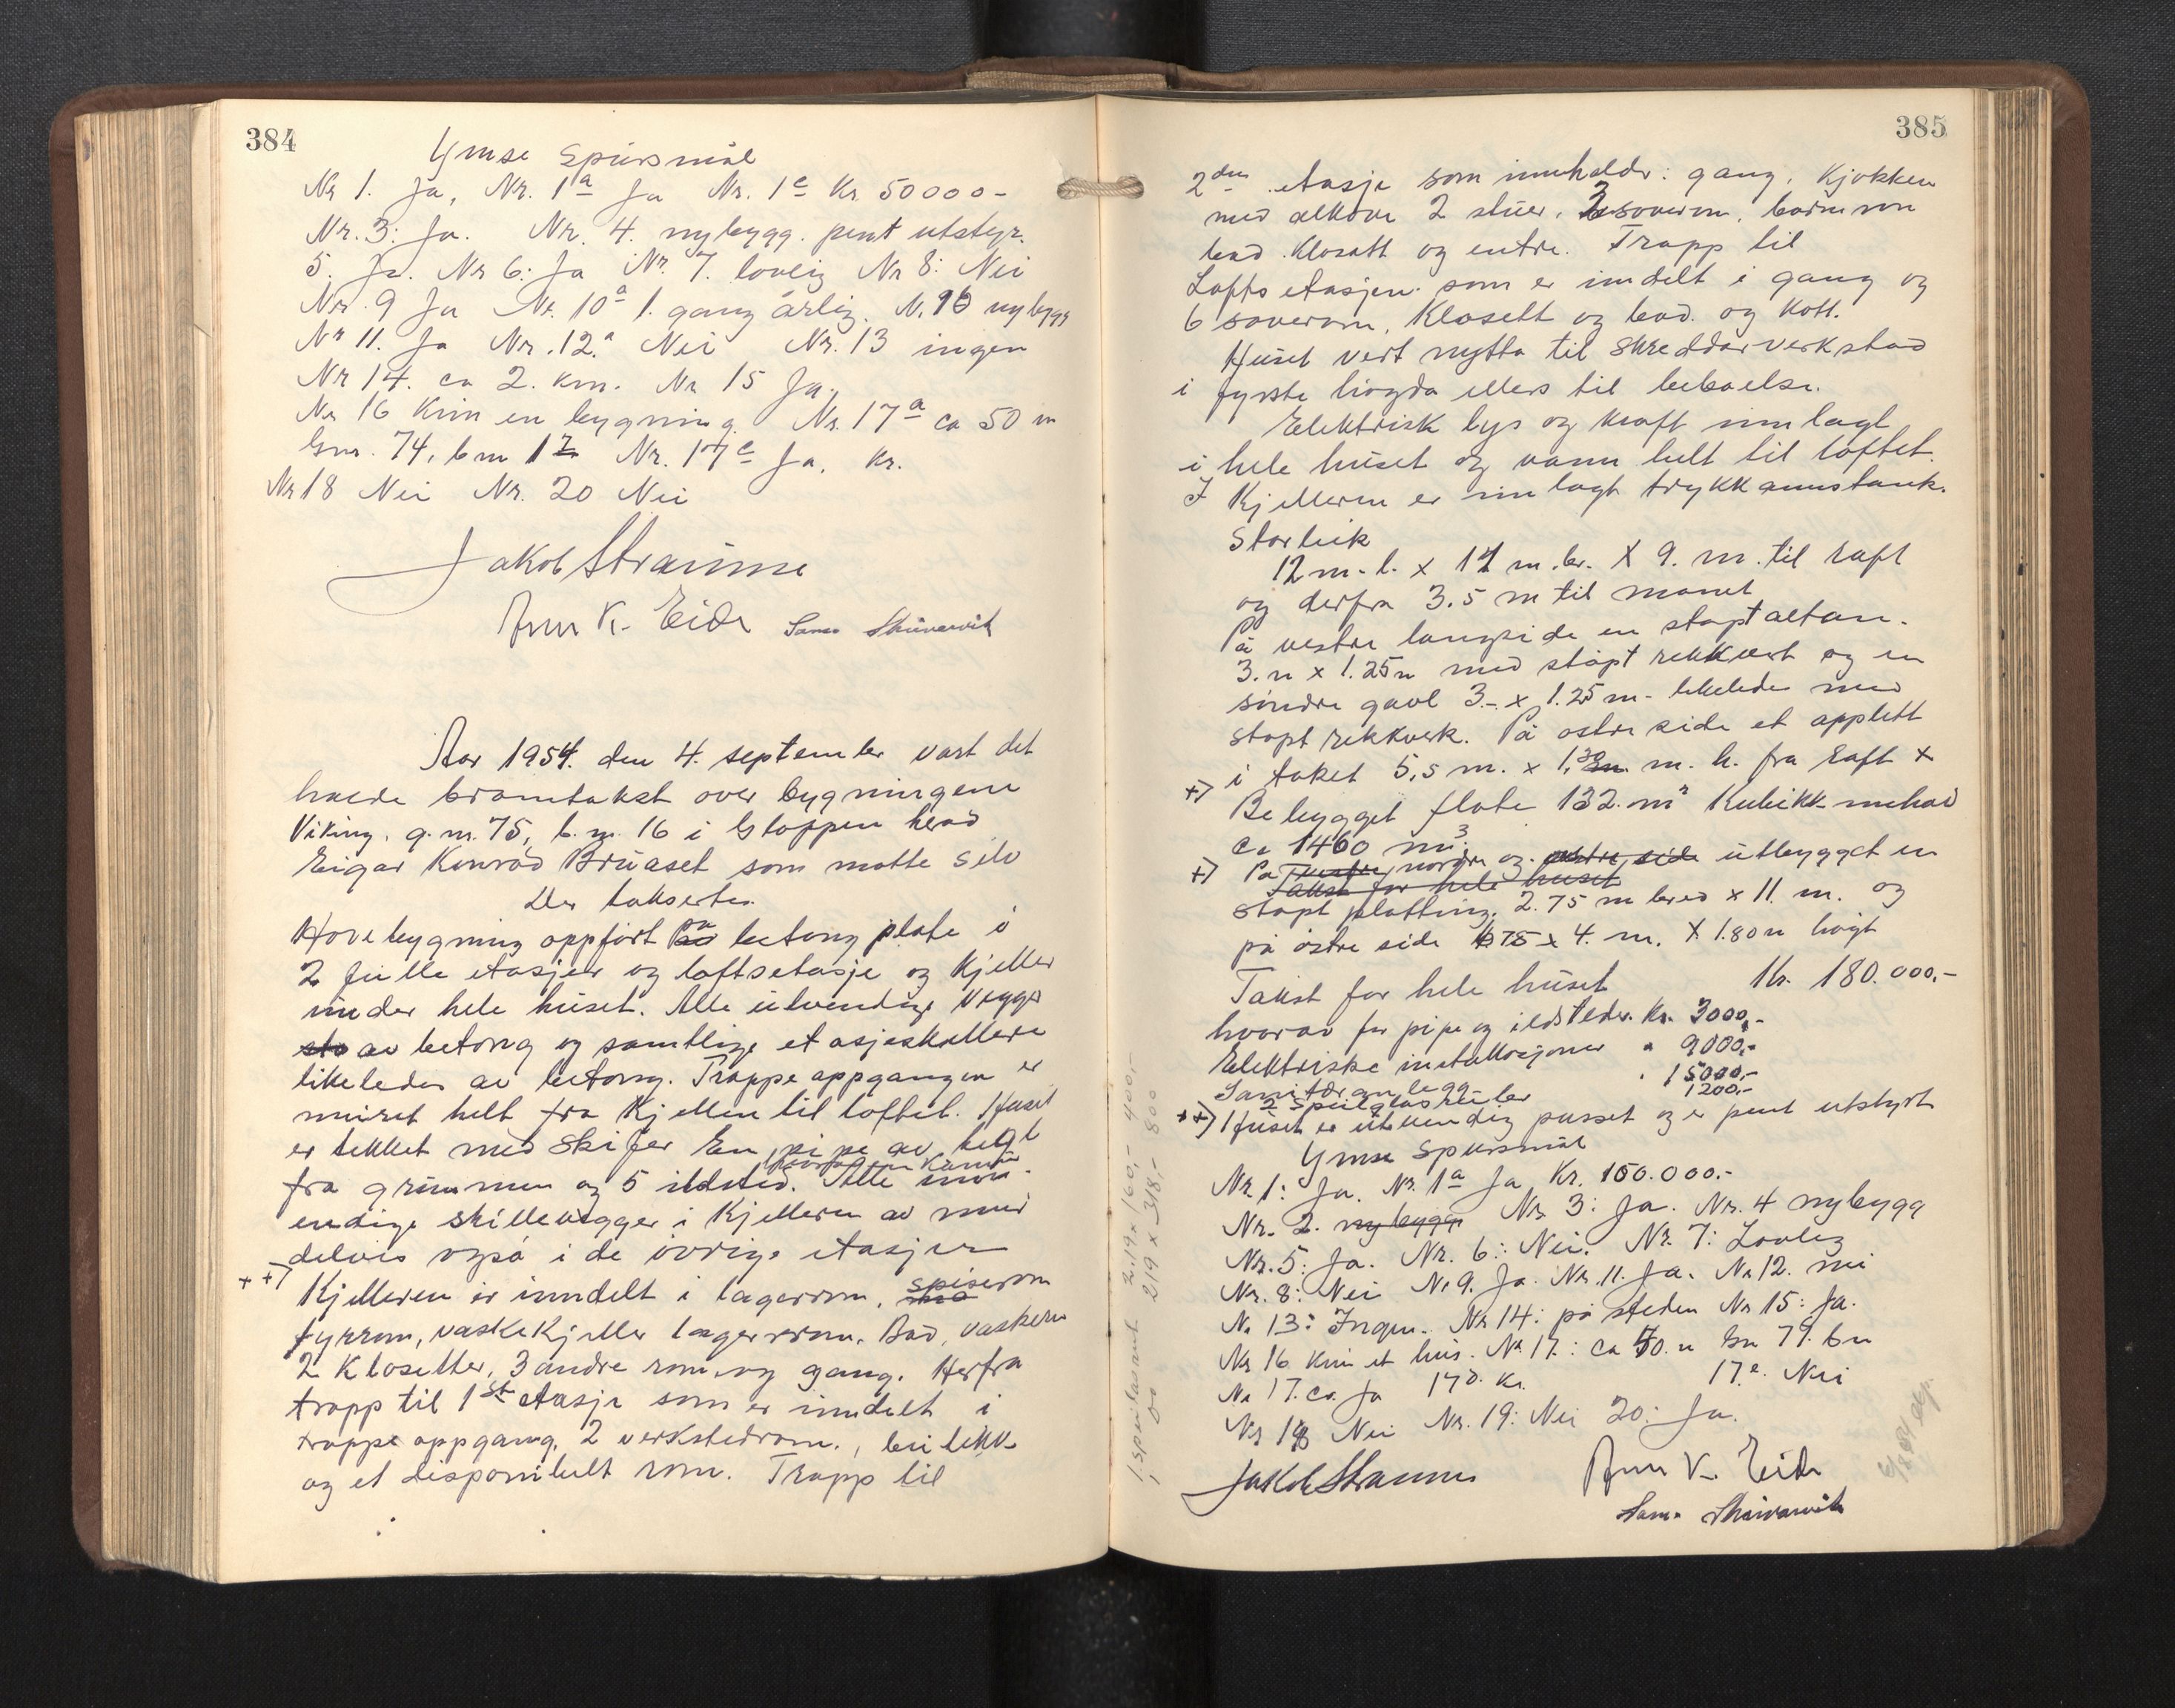 384
Ymse Spursmål
Nr 1. Ja, Nr. 1a Ja Nr. 1c Kr 50000-
Nr. 3: Ja. Nr. 4. nybygg. pent utstyr.
5. Ja. Nr 6: Ja Nr. 7. lovlig Nr 8: Nei
Nr. 9 Ja Nr. 10a 1. gang årlig. N. 10 nybygg
Nr 11. Ja Nr. 12.a Nei Nr. 13 ingen
Nr 14. ca 2. km. Nr 15 Ja.
Nr 16 Kun en bygning. Nr. 17a ca 50 m
Gnr. 74, bnr 17 Nr. 17c Ja, Kr.
Nr 18 Nei Nr. 20 Nei
Jakob Straume
K. Eide Sam. Skivarvik
Aar 1954. den 4. september vart det
halde branntakst over bygningene
Viking, g.nr. 75, b.nr. 16 i Gloppen herad
Eigar Konrad Brüaset som møtte selv
Der takserte:
Hovebygning oppført på betong plate i
2 fulle etasjer og loftsetasje og Kjeller
under hele huset. Alle utvendige vegger
sto av betong og samtlige etasjeskillere
likeledes av betong. Trappeoppgangen er
muret helt fra Kjelleren til loftet. Huset
er tekket med Skifer En pipe av tegl
fra grunnen og 5 ildsted. Alle innv-
endige skillevegger i Kjelleren av mur
delvis også i de øvrige etasjer
++) Kjelleren er inndelt i lagerrom, spiserom
fyrrom, vaskekjeller lagerrom. Bad, vaskerom
2 Klosetter, 3 andre rom og gang. Herfra
trapp til 1ste etasje som er inndelt i
trappe oppgang, 2 verkstedrom,
og et disponibelt rom. Trapp til
385
2den etasje som inneholder: gang, Kjøkken
med alkove 2 stuer, 2 soverom, barnerom
bad Klosett og entre. Trapp til
Lofts etasjen som er inndelt i gang og
6 soverom, Klosett og bad. og Kott.
Huset vert nytta til skreddarverkstad
i fyrste høgda ellers til beboelse.
Elektrisk lys og kraft innlagt
i hele huset og vann helt til loftet.
I Kjelleren er innlagt trykkvannstank.
Storleik
12 m. l. x 11 m. br. x 9. m. til raft
og derfra 3.5 m til mønet
På vestre langside en støpt altan.
3. m x 1.25 m med støpt rekkverk og en
søndre gavl 3.- x 1.25 m- likeledes med
støpt rekkverk. På østre side et opplett
+) i taket 5,5 m. x 1,30 m. h. fra raft x
Bebygget flate 132. m² Kubikk innhold
ca 1460 m³.
+) På vestre, nordre og østre side utbygget en
Takst for hele huset
støpt platting. 2.75 m bred x 11. m. og
på østre side 1.75 x 4. m. x 1.80 m høgt
Takst for hele huset Kr. 180.000,-
hvorav for pipe og ildsteder. Kr. 3000,-
Elektriske installasjoner " 9000,-
Sanitæranlegg " 15000,-
2 Speilglasruter 1200,-
++) Huset er utvendig pusset og er pent utstyrt
Ymse Spursmål
Nr 1: Ja. Nr. 1a Ja Kr. 150.000.-
Nr. 2. nybygg Nr 3: Ja. Nr. 4 nybygg
Nr. 5: Ja. Nr. 6: Nei. Nr. 7: Lovlig
Nr. 8: Nei Nr 9. Ja. Nr. 11. Ja. Nr 12. nei
Nr 13: Ingen. Nr 14: på steden Nr 15: Ja.
Nr 16 Kun et hus. Nr 17.: ca 50. m Gn 79. bn
Nr 17. c. Ja 17d. Kr. 17.e. Nei
Nr 18 Nei Nr. 19: Nei 20: Ja.
Jakob Straume K. Eide
Sam. Skivarvik
1 speilasrute 2.19 x 160,- 400,-
1 do 219 x 348,- 800